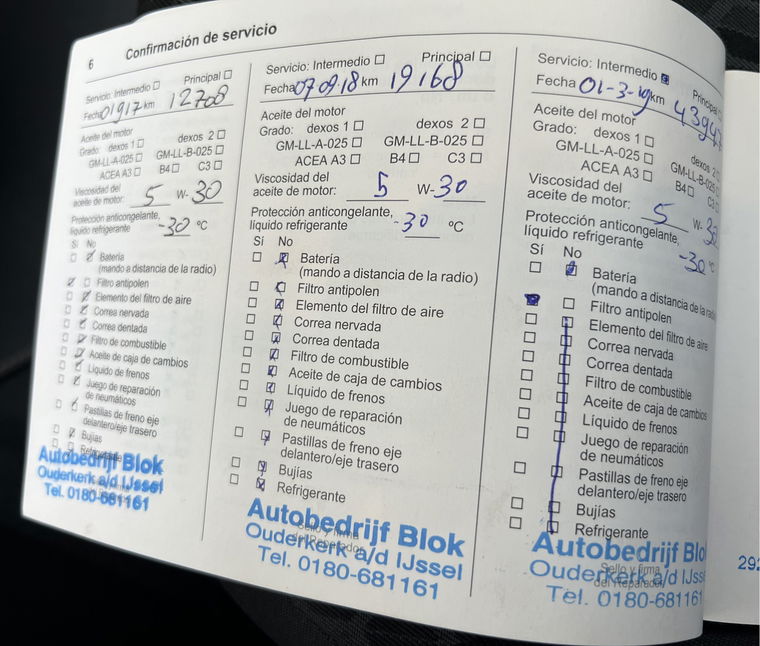 6 Confirmación de servicio
Servicio: Intermedio Principal
Fecha 01917 km 12708
Aceite del motor
Grado: dexos 1 dexos 2
GM-LL-A-025 GM-LL-B-025
ACEA A3 B4 C3
Viscosidad del
aceite de motor: 5 W-30
Protección anticongelante,
líquido refrigerante -30 °C
Sí No
Batería
(mando a distancia de la radio)
Filtro antipolen
Elemento del filtro de aire
Correa nervada
Correa dentada
Filtro de combustible
Aceite de caja de cambios
Líquido de frenos
Juego de reparación
de neumáticos
Pastillas de freno eje
delantero/eje trasero
Bujías
Refrigerante
Autobedrijf Blok
Ouderkerk a/d IJssel
Tel. 0180-681161
Servicio: Intermedio Principal
Fecha 07 09.18 km 19168
Aceite del motor
Grado: dexos 1 dexos 2
GM-LL-A-025 GM-LL-B-025
ACEA A3 B4 C3
Viscosidad del
aceite de motor: 5 W-30
Protección anticongelante,
líquido refrigerante -30 °C
Sí No
Batería
(mando a distancia de la radio)
Filtro antipolen
Elemento del filtro de aire
Correa nervada
Correa dentada
Filtro de combustible
Aceite de caja de cambios
Líquido de frenos
Juego de reparación
de neumáticos
Pastillas de freno eje
delantero/eje trasero
Bujías
Refrigerante
Sello y firma
del Reparador
Autobedrijf Blok
Ouderkerk a/d IJssel
Tel. 0180-681161
Servicio: Intermedio Principal
Fecha 01-3-19 km
Aceite del motor
Grado: dexos 1 dexos 2
GM-LL-A-025 GM-LL-B-025
ACEA A3 B4 C3
Viscosidad del
aceite de motor: 5 W- 30
Protección anticongelante,
líquido refrigerante -30 °C
Sí No
Batería
(mando a distancia de la radio)
Filtro antipolen
Elemento del filtro de aire
Correa nervada
Correa dentada
Filtro de combustible
Aceite de caja de cambios
Líquido de frenos
Juego de reparación
de neumáticos
Pastillas de freno eje
delantero/eje trasero
Bujías
Refrigerante
Sello y firma
del Reparador
Autobedrijf Blo
Ouderkerk a/d IJss
Tel. 0180-6816
292